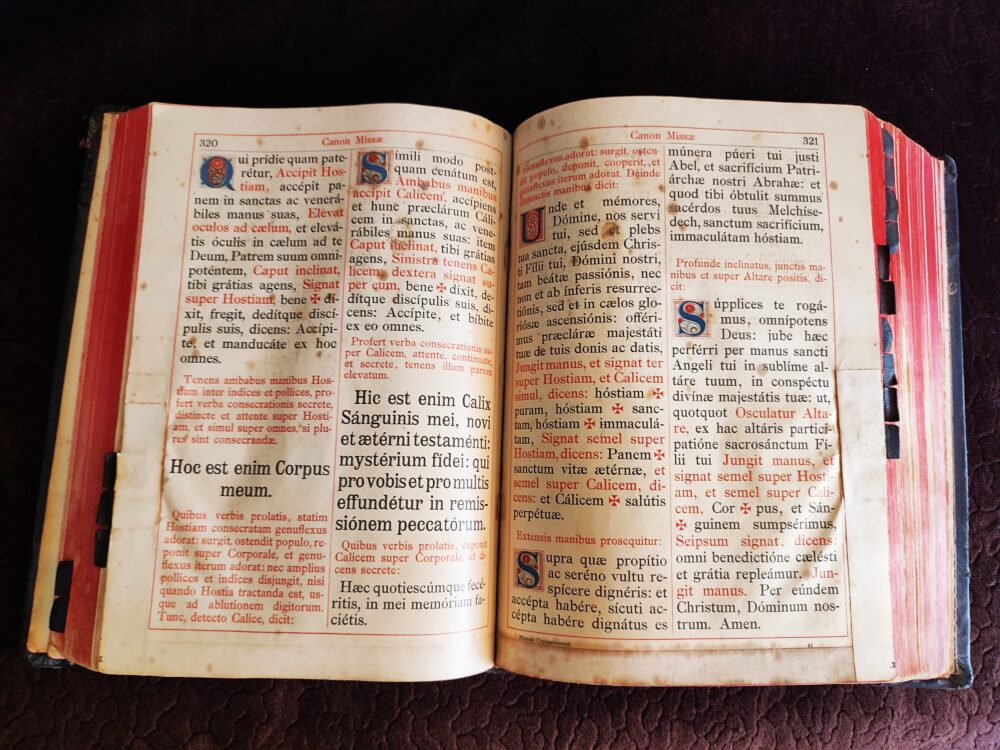 320
Canon Missæ
Qui prídie quam pate-
rétur, Accipit Hos-
tiam, accépit pa-
nem in sanctas ac venerá-
biles manus suas, Elevat
oculos ad cælum, et elevá-
tis óculis in cælum ad te
Deum, Patrem suum omni-
poténtem, Caput inclinat,
tibi grátias agens, Signat
super Hostiam, bene ✠ dí-
xit, fregit, dedítque discí-
pulis suis, dicens: Accípi-
te, et manducáte ex hoc
omnes.
Tenens ambabus manibus Hos-
tiam inter indices et pollices, pro-
fert verba consecrationis secrete,
distincte et attente super Hosti-
am, et simul super omnes, si plu-
res sint consecrandæ.
Hoc est enim Corpus
meum.
Quibus verbis prolatis, statim
Hostiam consecratam genuflexus
adorat: surgit, ostendit populo, re-
ponit super Corporale, et genu-
flexus iterum adorat: nec amplius
pollices et indices disjungit, nisi
quando Hostia tractanda est, us-
que ad ablutionem digitorum.
Tunc, detecto Calice, dicit:
Símili modo post-
quam cenátum est,
Ambabus manibus
accipit Calicem, accípiens
et hunc præclárum Cáli-
cem in sanctas, ac vene-
rábiles manus suas: item
Caput inclinat, tibi grátias
agens, Sinistra tenens Ca-
licem, dextera signat su-
per eum, bene ✠ díxit, de-
dítque discípulis suis, di-
cens: Accípite, et bíbite
ex eo omnes.
Profert verba consecrationis su-
per Calicem, attente, continuate,
et secrete, tenens illum parum
elevatum.
Hic est enim Calix
Sánguinis mei, novi
et ætérni testaménti:
mystérium fídei: qui
pro vobis et pro multis
effundétur in remis-
siónem peccatórum.
Quibus verbis prolatis, deponit
Calicem super Corporale, et di-
cens secrete:
Hæc quotiescúmque fecé-
ritis, in mei memóriam fa-
ciétis.
Canon Missæ
321
Genuflexus adorat: surgit, osten-
dit populo, deponit, cooperit, et
genuflexus iterum adorat. Deinde
disjunctis manibus dicit:
Unde et mémores,
Dómine, nos servi
tui, sed et plebs
tua sancta, ejúsdem Chris-
ti Fílii tui, Dómini nostri,
tam beátæ passiónis, nec
non et ab ínferis resurrec-
tiónis, sed et in cælos glo-
riósæ ascensiónis: offéri-
mus præcláræ majestáti
tuæ de tuis donis ac datis,
Jungit manus, et signat ter
super Hostiam, et Calicem
simul, dicens: hóstiam ✠
puram, hóstiam ✠ sanc-
tam, hóstiam ✠ immaculá-
tam, Signat semel super
Hostiam, dicens: Panem ✠
sanctum vitæ ætérnæ, et
semel super Calicem, di-
cens: et Cálicem ✠ salútis
perpétuæ.
Extensis manibus prosequitur:
Supra quæ propítio
ac seréno vultu re-
spícere dignéris: et
accépta habére, sícuti ac-
cépta habére dignátus es
Missale Romanum
41
múnera púeri tui justi
Abel, et sacrifícium Patri-
árchæ nostri Abrahæ: et
quod tibi óbtulit summus
sacérdos tuus Melchíse-
dech, sanctum sacrifícium,
immaculátam hóstiam.
Profunde inclinatus, junctis ma-
nibus et super Altare positis, di-
cit:
Súpplices te rogá-
mus, omnípotens
Deus: jube hæc
perférri per manus sancti
Angeli tui in sublíme al-
táre tuum, in conspéctu
divínæ majestátis tuæ: ut,
quotquot Osculatur Alta-
re, ex hac altáris partici-
patióne sacrosánctum Fí-
lii tui Jungit manus, et
signat semel super Hosti-
am, et semel super Cali-
cem, Cor ✠ pus, et Sán-
✠ guinem sumpsérimus,
Seipsum signat, dicens:
omni benedictióne cælésti
et grátia repleámur. Jun-
git manus. Per eúndem
Christum, Dóminum nos-
trum. Amen.